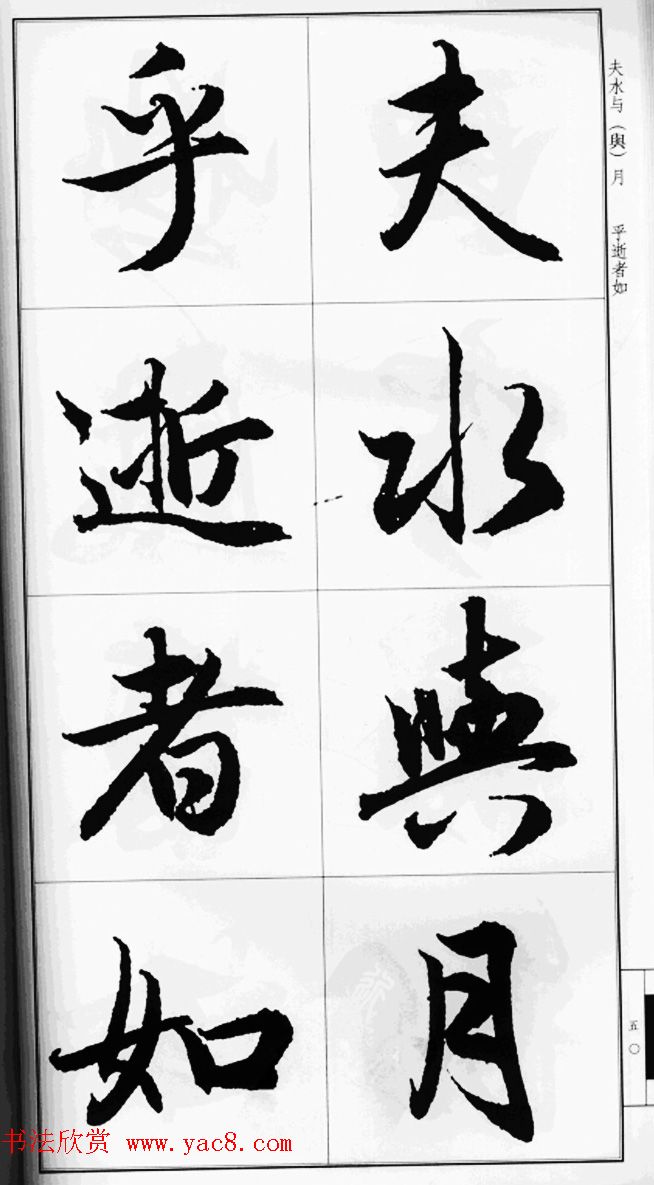 夫水與月
乎逝者如
夫水与（與）月　乎逝者如
五〇
书法欣赏 www.yac8.com